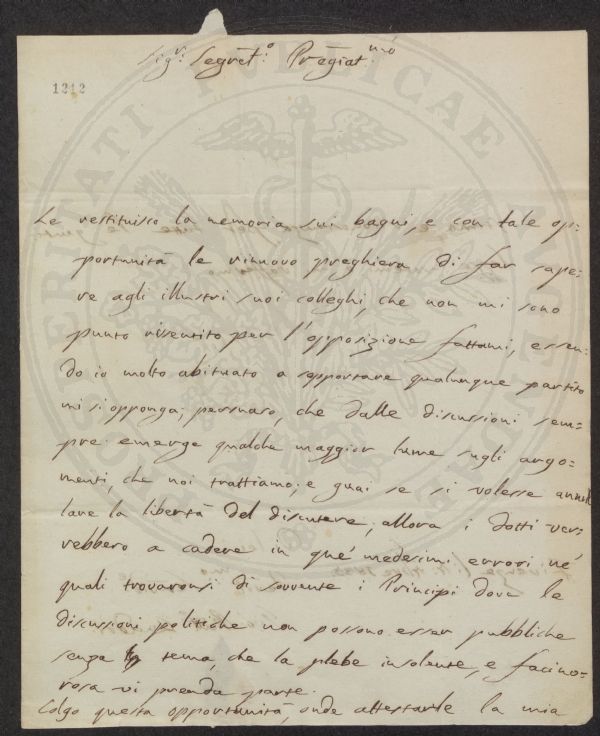 Sig.r Segret.o Pregiat.mo
1212
Le restituisco la memoria sui bagni, e con tale op=
portunità le rinnuovo preghiera di far sape=
re agli illustri suoi colleghi, che non mi sono
punto rissentito per l'opposizione fattami, essen=
do io molto abituato a sopportare qualunque partito
mi si opponga; persuaso, che dalle discussioni sem=
pre emerge qualche maggior lume sugli argo=
menti, che noi trattiamo; e guai se si volesse annul
lare la libertà del discutere; allora i dotti ver=
rebbero a cadere in que' medesimi errori né
quali trovaronsi di sovvente i Principi dove le
discussioni politiche non possono esser pubbliche
senza tema, che la plebe insolente, e facino=
rosa vi prenda parte.
Colgo questa opportunità, onde attestarle la mia